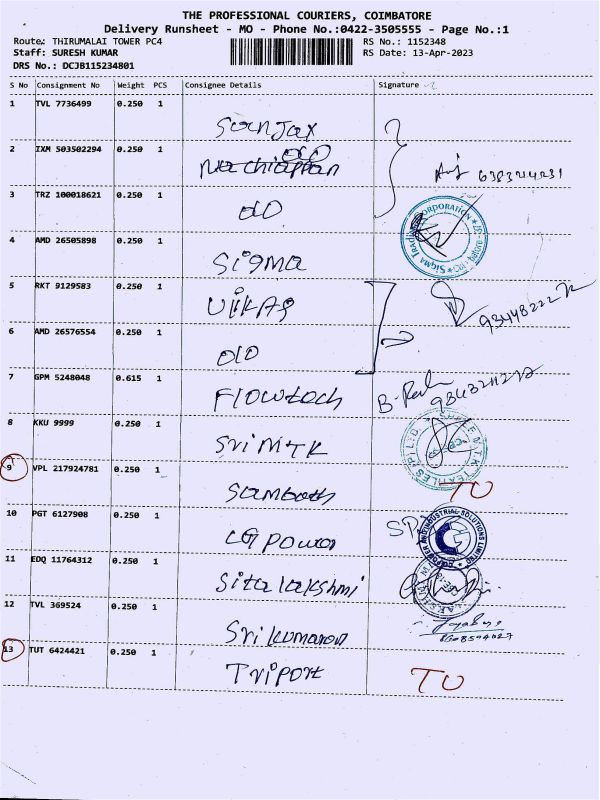 THE PROFESSIONAL COURIERS, COIMBATORE
Delivery Runsheet - MO - Phone No.:0422-3505555 - Page No.:1
Route: THIRUMALAI TOWER PC4 RS No.: 1152348
Staff: SURESH KUMAR RS Date: 13-Apr-2023
DRS No.: DCJB115234801
S No Consignment No Weight PCS Consignee Details Signature
1 TVL 7736499 0.250 1
Sanjax
2 IXM 503502294 0.250 1
Nachiappan
3 TRZ 100018621 0.250 1
do
4 AMD 26505898 0.250 1
Sigma
5 RKT 9129583 0.250 1
Vikas
6 AMD 26576554 0.250 1
do
7 GPM 5248048 0.615 1
Flowtech
8 KKU 9999 0.250 1
Sri MTK
9 VPL 217924781 0.250 1
Sambath TO
10 PGT 6127908 0.250 1
CG Power
11 EDQ 11764312 0.250 1
Sita lakshmi
12 TVL 369524 0.250 1
Sri kumaran
13 TUT 6424421 0.250 1
Triport TO